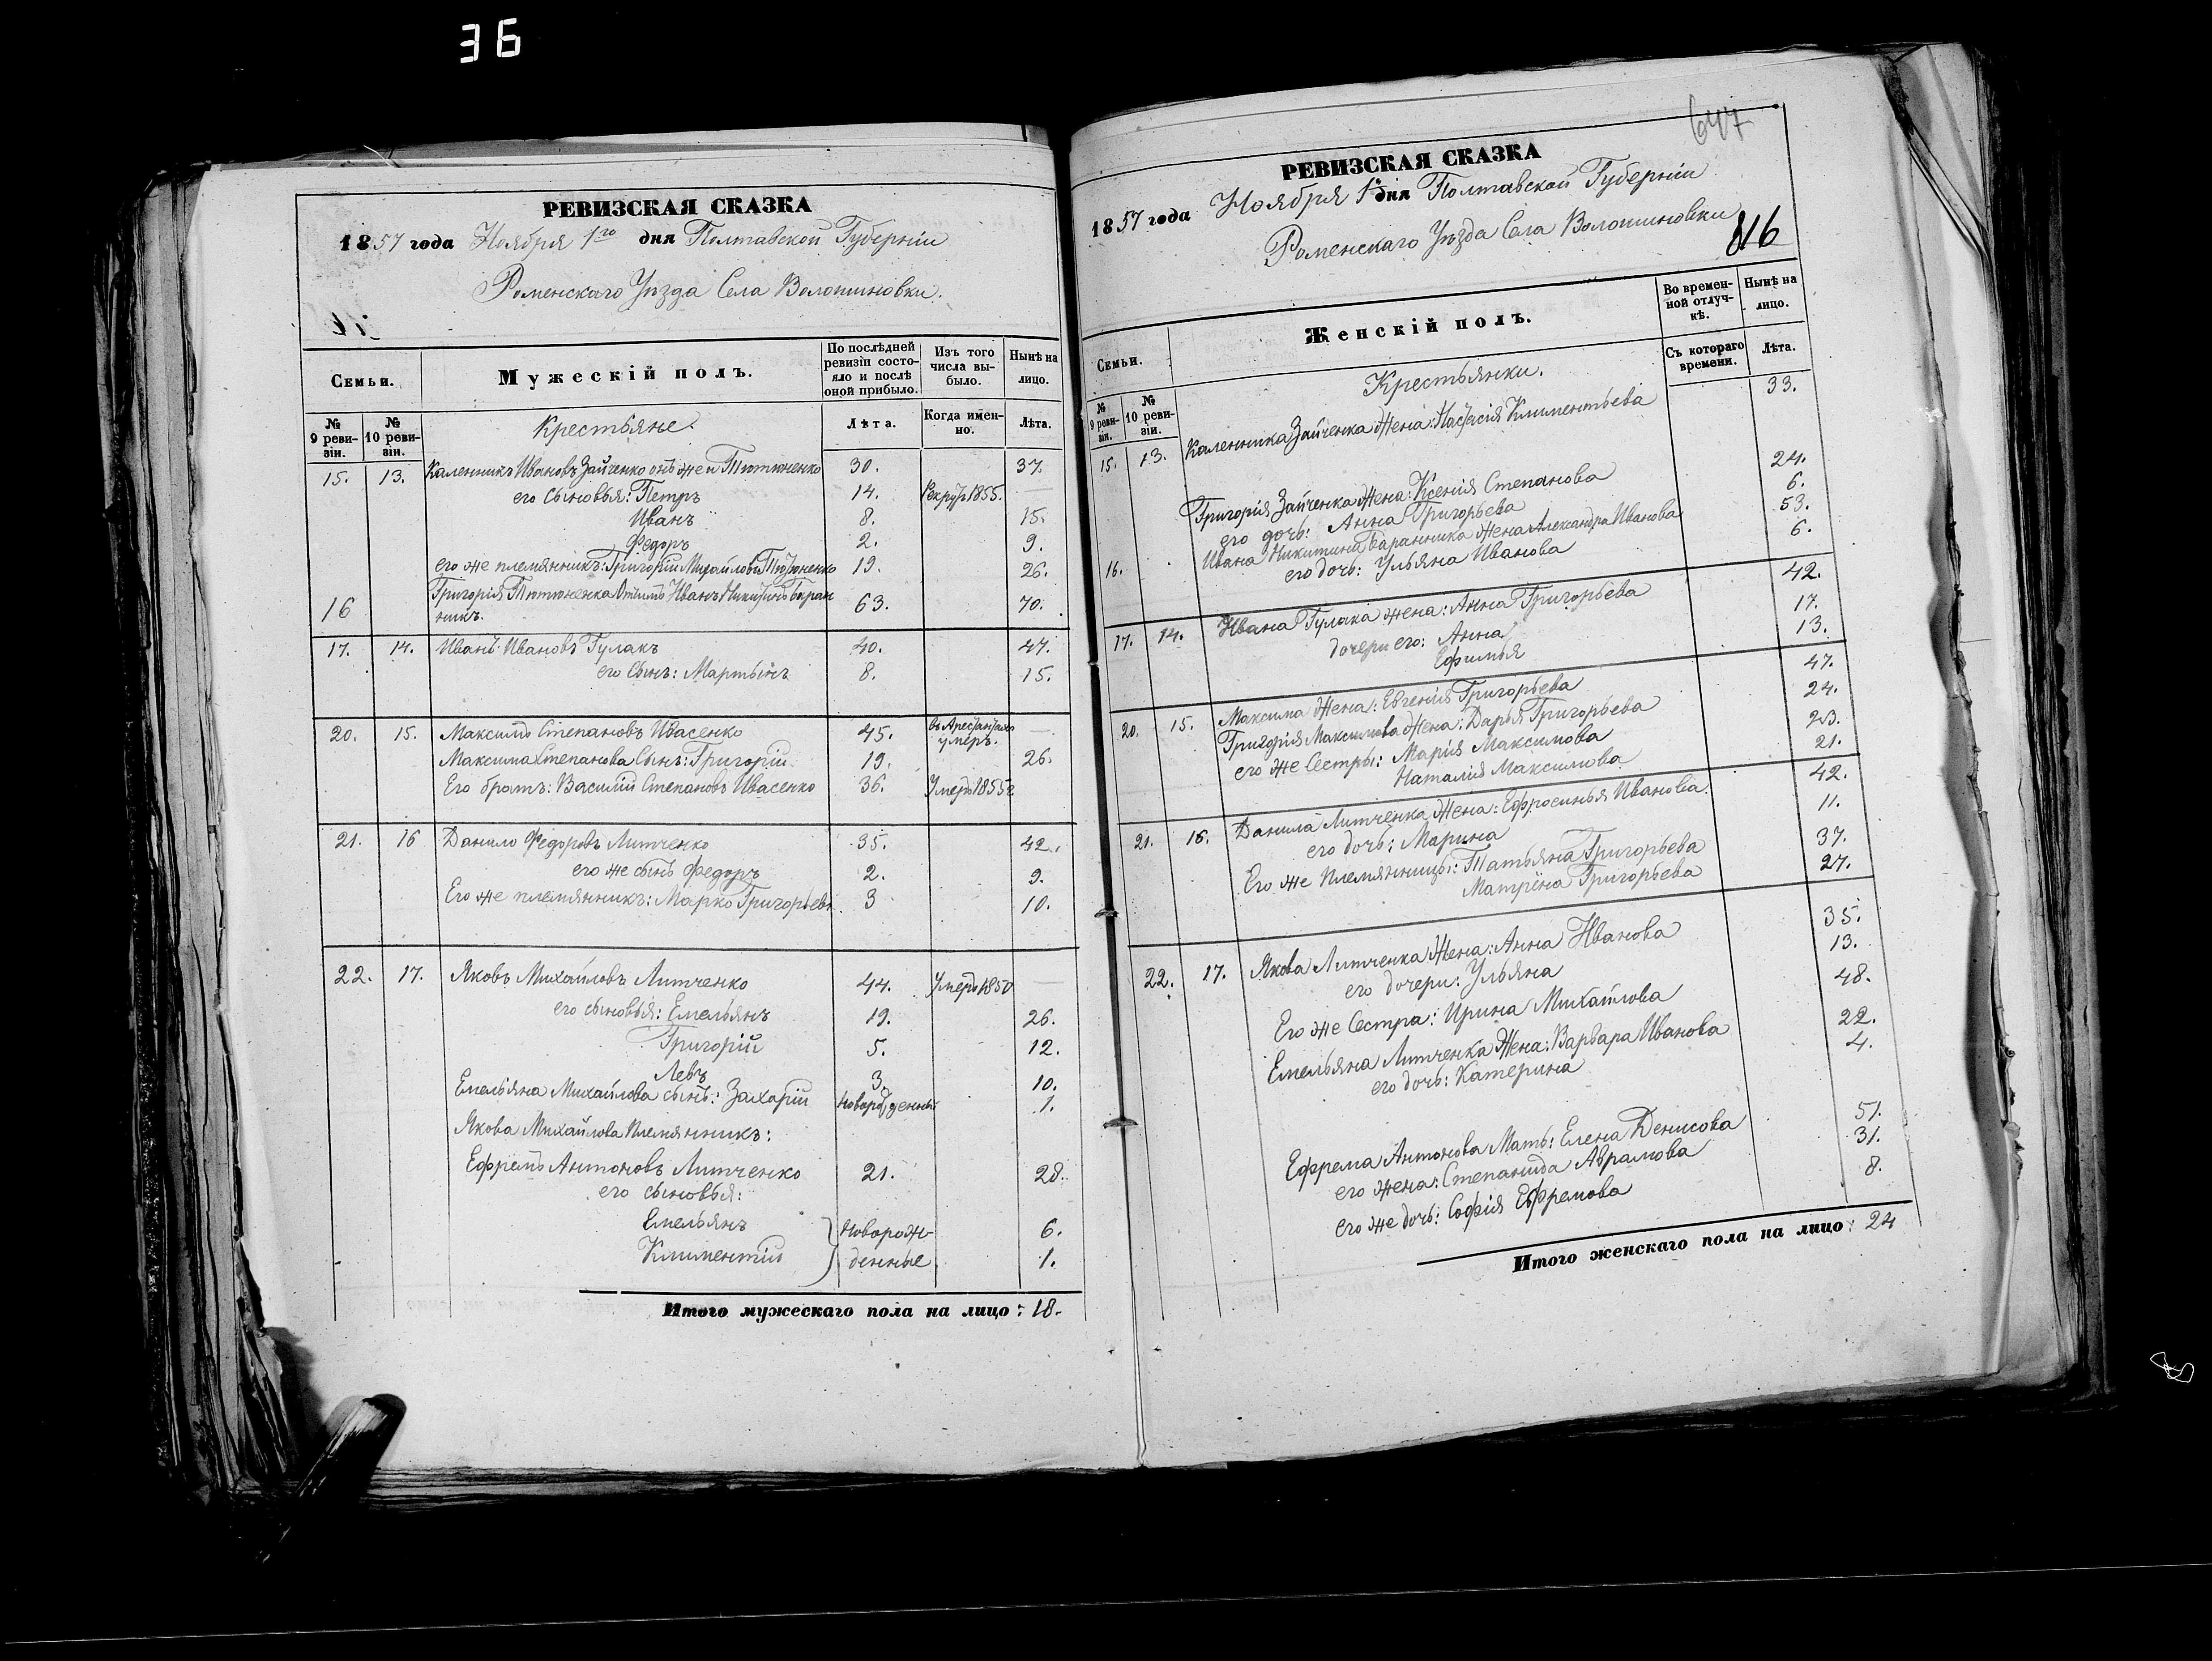 36
РЕВИЗСКАЯ СКАЗКА
1857 года Ноября 1го дня Полтавской Губерніи
Роменскаго Уѣзда Села Волошиновки.
Семьи.
Мужескій полъ.
По послѣдней ревизіи состояло и послѣ оной прибыло.
Изъ того числа выбыло.
Нынѣ на лицо.
№ 9 ревизіи.
№ 10 ревизіи.
Крестьяне.
Лѣта.
Когда именно.
Лѣта.
15. 13. Каленикъ Ивановъ Зайченко онъ же и Тютюненко 30. 37.
его сыновья: Петръ 14. Рекрутъ 1855. —
Иванъ 8. 15.
Федоръ 2. 9.
его же племянникъ: Григорій Михайловъ Тютюненко 19. 26.
16 Григорія Тютюненка Отчимъ Иванъ Никитинъ Баран 63. 70.
никъ.
17. 14. Иванъ Ивановъ Гулакъ 40. 47.
его сынъ: Мартынъ 8. 15.
20. 15. Максимъ Степановъ Ивасенко 45. умеръ. —
Максима Степанова Сынъ: Григорій 19. 26.
Его братъ: Василій Степановъ Ивасенко 36. Умеръ 1855г
21. 16 Данило Федоровъ Литченко 35. 42.
его же сынъ Федоръ 2. 9.
Его же племянникъ: Марко Григорьевъ 3 10.
22. 17. Яковъ Михайловъ Литченко 44. Умеръ 1850 —
его сыновья: Емельянъ 19. 26.
Григорій 5. 12.
Левъ 3. 10.
Емельяна Михайлова сынъ: Захарій новорожденный 1.
Якова Михайлова Племянникъ:
Ефремъ Антоновъ Литченко 21. 28.
его сыновья:
Емельянъ } новорож- 6.
Климентій } денные 1.
Итого мужескаго пола на лицо: 18.
647
РЕВИЗСКАЯ СКАЗКА
1857 года Ноября 1го дня Полтавской Губерніи
Роменскаго Уѣзда Села Волошиновки
816
Семьи.
Женскій полъ.
Во временной отлучкѣ.
Нынѣ на лицо.
№ 9 ревизіи.
№ 10 ревизіи.
Крестьянки.
Съ котораго времени.
Лѣта.
15. 13. Каленника Зайченка Жена: Настасія Климентьева 33.
Григорія Зайченка Жена: Ксенія Степанова 24.
его дочь: Анна Григорьева 6.
16. Ивана Никитина Баранника Жена Александра Иванова 53.
его дочь: Ульяна Иванова 6.
17. 14. Ивана Гулака жена: Анна Григорьева 42.
дочери его: Анна 17.
Ефимья 13.
20. 15. Максима Жена: Евгенія Григорьева 47.
Григорія Максимова Жена: Дарья Григорьева 24.
его же Сестры: Марія Максимова 23.
Наталія Максимова 21.
21. 16. Данила Литченка Жена: Ефросинья Иванова 42.
его дочь: Марина 11.
Его же Племянницы: Татьяна Григорьева 37.
Матрёна Григорьева 27.
22. 17. Якова Литченка Жена: Анна Иванова 35.
его дочери: Ульяна 13.
Его же Сестра: Ирина Михайлова 48.
Емельяна Литченка Жена: Варвара Иванова 22.
его дочь: Катерина 4.
Ефрема Антонова Мать: Елена Денисова 51.
его жена: Степанида Абрамова 31.
его же дочь: Софія Ефремова 8.
Итого женскаго пола на лицо: 24